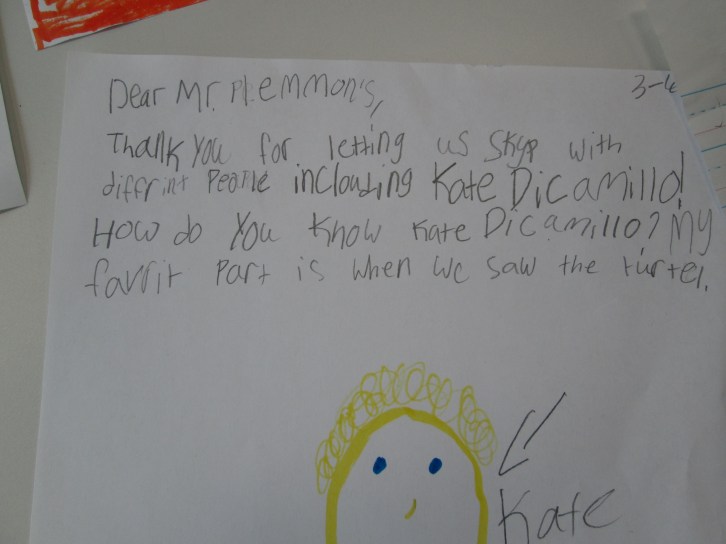 Dear Mr. Plemmon's,
3-4
Thank You for letting us Skyp with
diffrint People inclouding Kate Dicamillo!
How do you know Kate Dicamillo? My
favrit Part is when we saw the turtel.
Kate